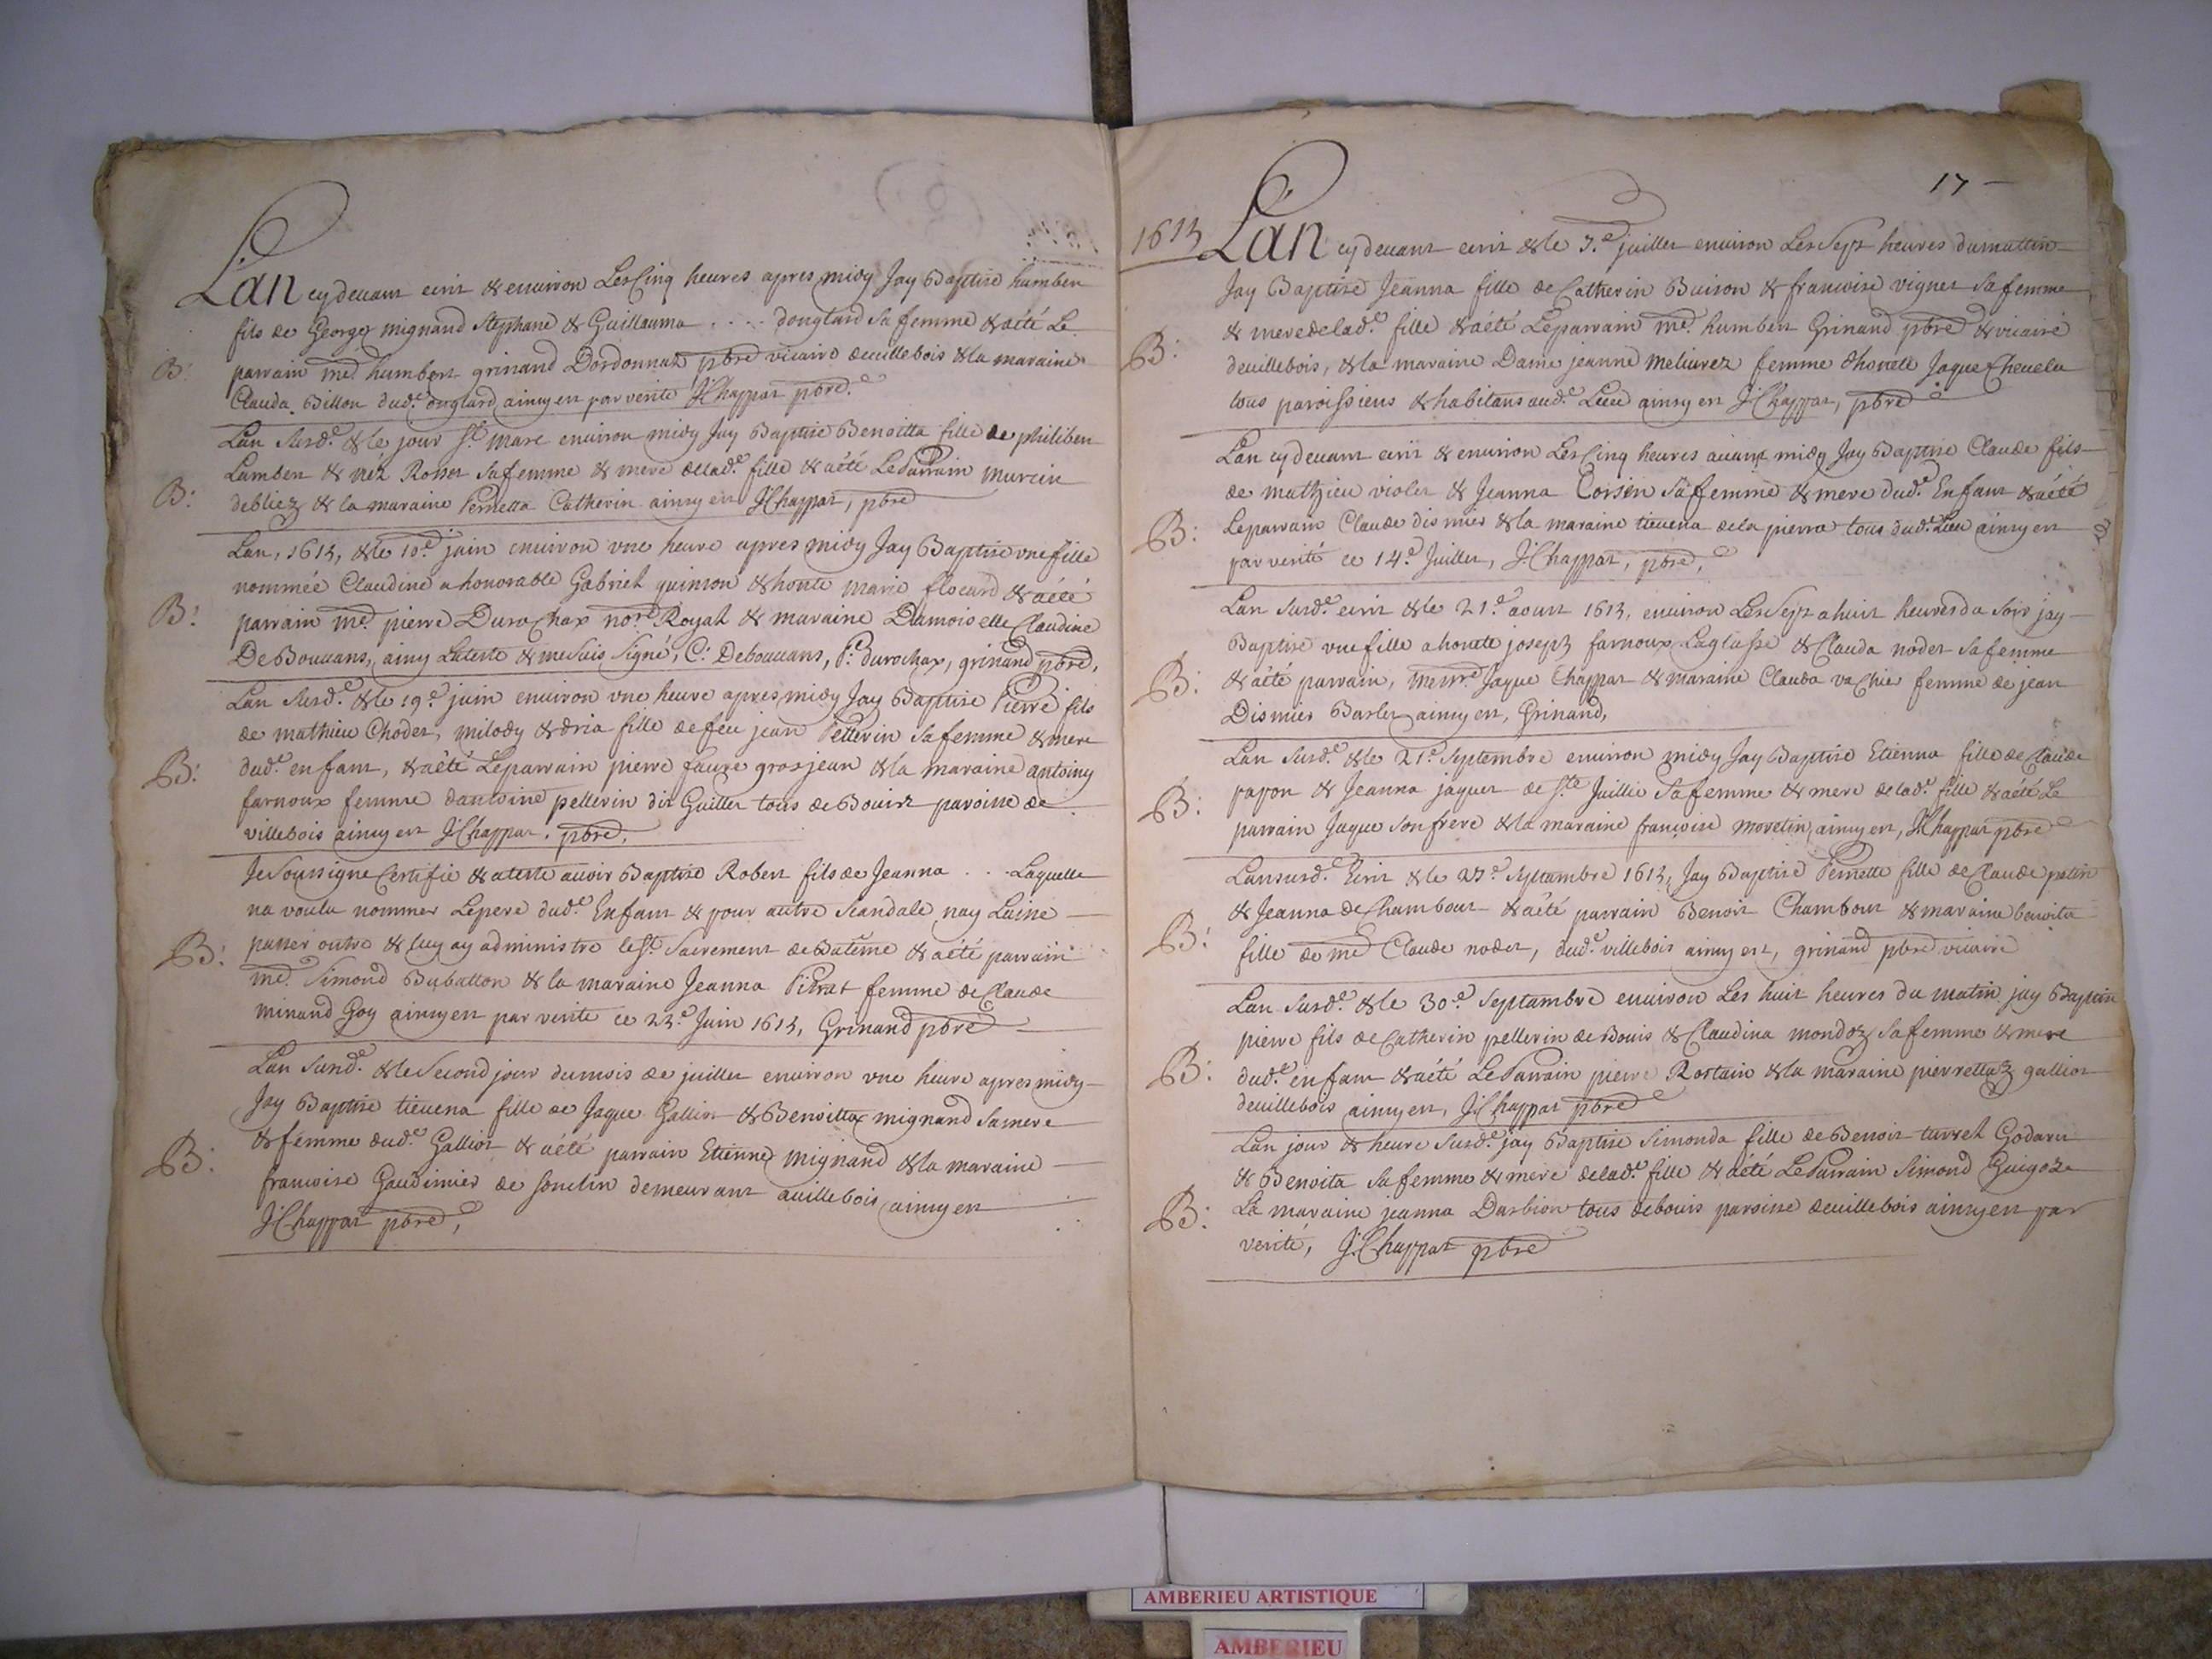 Lan cy devant ecrit & environ Les Cinq heures apres midy Jay Baptise humbert
fils de George mignand Stephane & Guillauma .... douglard Sa femme & a été Le
B: parrain me. humbert grinand Dordonnat pbre vicaire devillebois & la maraine
Clauda Billon dud.e duglard ainsy est par verité J: Chappat pbre.
Lan Susd.e & le jour St. Marc environ midy Jay Baptise Benoitta fille de philibert
Lambert & néz Rosset Sa femme & mere de lad.e fille & a été Le Parrain murcin
B: debliez & la maraine Pernetta Catherin ainsy est J: Chappat, pbre
Lan, 1613, & le 10.e juin environ une heure apres midy Jay Baptise une fille
nommée Claudine a honorable Gabriel quinson & honte marie flocard & a été
B: parrain me. pierre Durochax no.re Royal & maraine Damoiselle Claudine
De Bouvans, ainsy Lateste & me Suis Signé, C: Debouvans, P: durochax, grinand pbre,
Lan Susd.e & le 19.e juin environ une heure apres midy Jay Baptise Pierre fils
de mathieu Chodet, milody & dria fille de feu jean Pellerin Sa femme & mere
B: dud.e enfant, & a été Le parrain pierre faure grosjean & la maraine antoiny
farnoux femme dantoine pellerin dit Guillet tous de Bouis paroisse de
villebois ainsy est J: Chappat. pbre.
Je Soussigne Certifie & ateste avoir Baptise Robert fils de Jeanna ... Laquelle
na voulu nommer Le pere dud.e Enfant & pour autre Scandale nay Laisse
B: passer outre & luy ay administre le St. Sacrement de Batême & a été parrain
me. Simond Buballon & la maraine Jeanna Pitrat femme de Claude
minand Goy ainsy est par verite ce 23.e Juin 1613, Grinand pbre
Lan Susd.e & le Second jour du mois de juillet environ une heure apres midy
Jay Baptise tievena fille de Jaque Galliot & Benoitta mignand Sa mere
B: & femme dud.e Galliot & a été parrain Etienne mignand & la maraine
francoise Gaudimier de Souclin demeurant a villebois ainsy est
J: Chappat pbre,
17
1613 Lan cy devant ecrit & le 7.e juillet environ Les Sept heures du mattin
Jay Baptise Jeanna fille de Catherin Buison & francoise vignet Sa femme
B: & mere de lad.e fille & a été Le parrain me. humbert Grinand pbre & vicaire
devillebois, & la maraine Dame jeanne Meliurez femme dhonete Jaque Chevelu
tous paroissiens & habitans aud.e Lieu ainsy est J: Chappat, pbre
Lan cy devant ecrit & environ Les Cinq heures avant midy Jay Baptise Claude fils
de mathieu violet & Jeanna Corsin Sa femme & mere dud.e Enfant & a été
B: Le parrain Claude dismier & la maraine tievena de la pierra tous dud.e Lieu ainsy est
par verité ce 14.e Juillet, J: Chappat, pbre,
Lan Susd.e ecrit & le 21.e aoust 1613, environ Les Sept a huit heures du Soir jay
Baptise une fille a honete joseph farnoux Laglasse & Clauda nodet Sa femme
B: & a été parrain, messre. Jaque Chappat & maraine Clauda vachier femme de jean
Dismier Barlet ainsy est, Grinand,
Lan Susd.e & le 21.e Septembre environ midy Jay Baptise Etienna fille de Claude
B: papon & Jeanna jaquet de Ste Juillie Sa femme & mere de lad.e fille & a été Le
parrain Jaque Son frere & la maraine françoise moretin, ainsy est, J: Chappat pbre
Lan susd.e Ecrit & le 27.e Septambre 1613, Jay Baptise Pernette fille de Claude pelin
B: & Jeanna de Chambour & a été parrain Benoit Chambour & maraine benoita
fille de me Claude nodet, dud.e villebois ainsy est, grinand pbre vicaire
Lan Susd.e & le 30.e Septambre environ Les huit heures du matin jay Baptise
pierre fils de Catherin pellerin de Bouis & Claudina mondoz Sa femme & mere
B: dud.e enfant & a été Le Parrain pierre Rostain & la maraine pierrettaz galliot
devillebois ainsy est, J: Chappat pbre
Lan jour & heure Susd.e jay Baptise Simonda fille de Benoit turrel Godaru
& Benoita Sa femme & mere de lad.e fille & a été Le Parrain Simond Guigoz &
B: La maraine jeanna Darbion tous de bouis paroisse devillebois ainsy est par
verité, J: Chappat pbre
AMBERIEU ARTISTIQUE
AMBERIEU